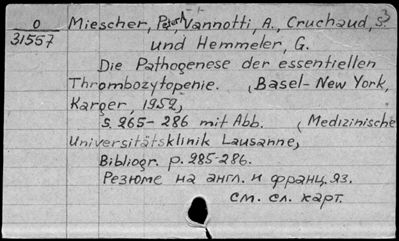 O
31557
Miescher, Peter, Vannotti, A., Cruchaud, S.
und Hemmeler, G.
Die Pathogenese der essentiellen
Thrombozytopenie. (Basel-New York,
Karger, 1952,
S. 265-286 mit Abb. (Medizinische
Universitätsklinik Lausanne,
Bibliogr. p. 285-286.
Резюме на англ. и франц. яз.
см. сл. карт.